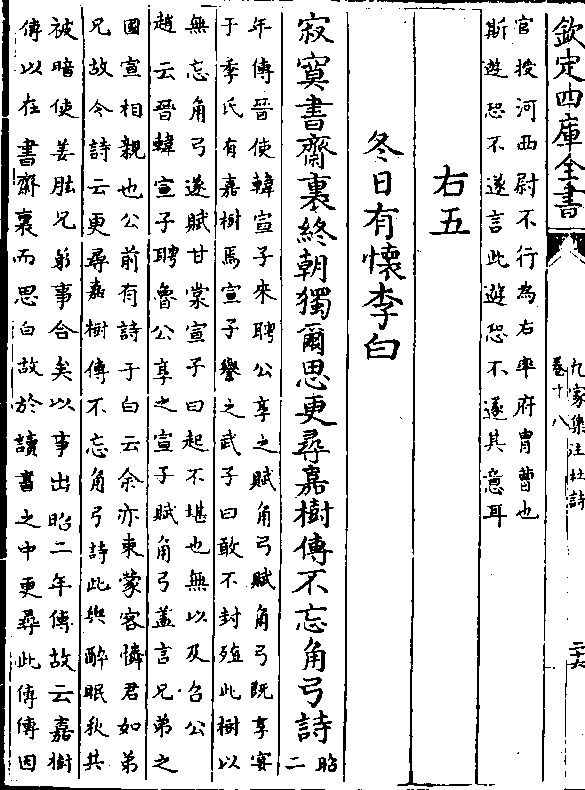 欽定四庫全書
九家集注杜詩
卷十八
二十六
官授河西尉不行為右率府胄曹也
斯遊恐不遂言此遊恐不遂其意耳
右五
冬日有懷李白
寂寞書齋裏終朝獨爾思更尋嘉樹傳不忘角弓詩
昭
二
年傳晉使韓宣子來聘公享之賦角弓賦角弓既享宴
于季氏有嘉樹焉宣子譽之武子曰敢不封殖此樹以
無忘角弓遂賦甘棠宣子曰起不堪也無以及召公
趙云晉韓宣子聘魯公享之宣子賦角弓蓋言兄弟之
國宣相親也公前有詩于白云余亦東蒙客憐君如弟
兄故今詩云更尋嘉樹傳不忘角弓詩此與醉眠秋共
被暗使姜肱兄弟事合矣以事出昭二年傳故云嘉樹
傳以在書齋裏而思白故於讀書之中更尋此傳傳因